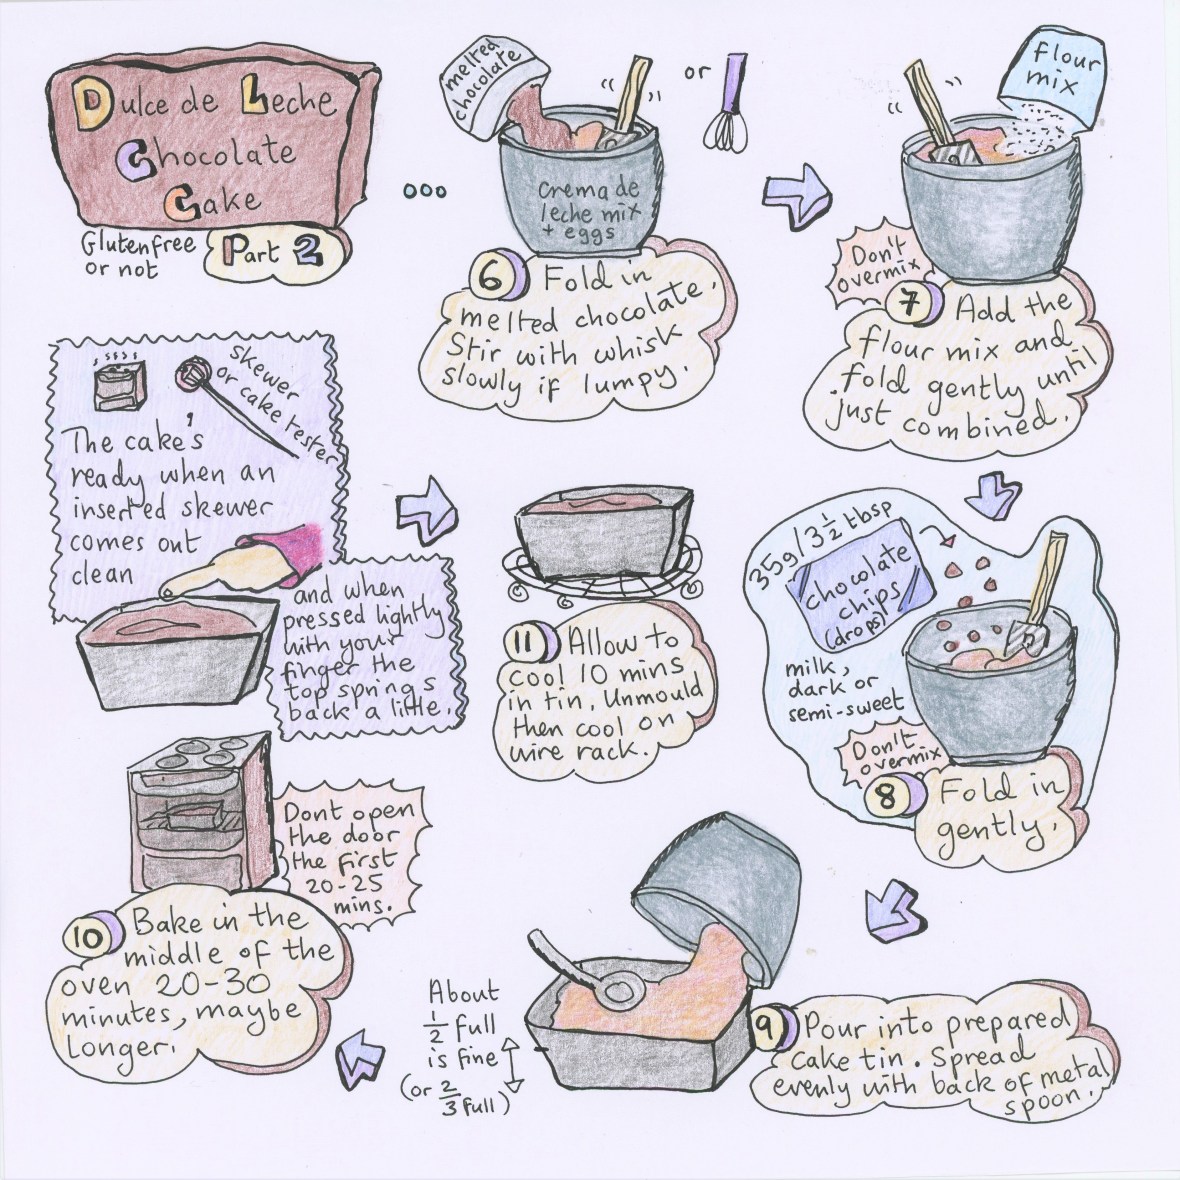 Dulce de Leche
Chocolate
Cake
Glutenfree
or not
Part 2
melted
chocolate
or
Crema de
leche mix
+ eggs
6 Fold in
melted chocolate.
Stir with whisk
slowly if lumpy.
flour
mix
Don't
overmix
7 Add the
flour mix and
fold gently until
just combined.
35g/3½ tbsp
chocolate
chips
(drops)
milk,
dark or
semi-sweet
Don't
overmix
8 Fold in
gently.
9 Pour into prepared
cake tin. Spread
evenly with back of metal
spoon.
About
½ full
is fine
(or ⅔ full)
10 Bake in the
middle of the
oven 20-30
minutes, maybe
longer.
Dont open
the door
the first
20-25
mins.
skewer
or cake tester
The cake's
ready when an
inserted skewer
comes out
clean
and when
pressed lightly
with your
finger the
top springs
back a little.
11 Allow to
cool 10 mins
in tin. Unmould
then cool on
wire rack.